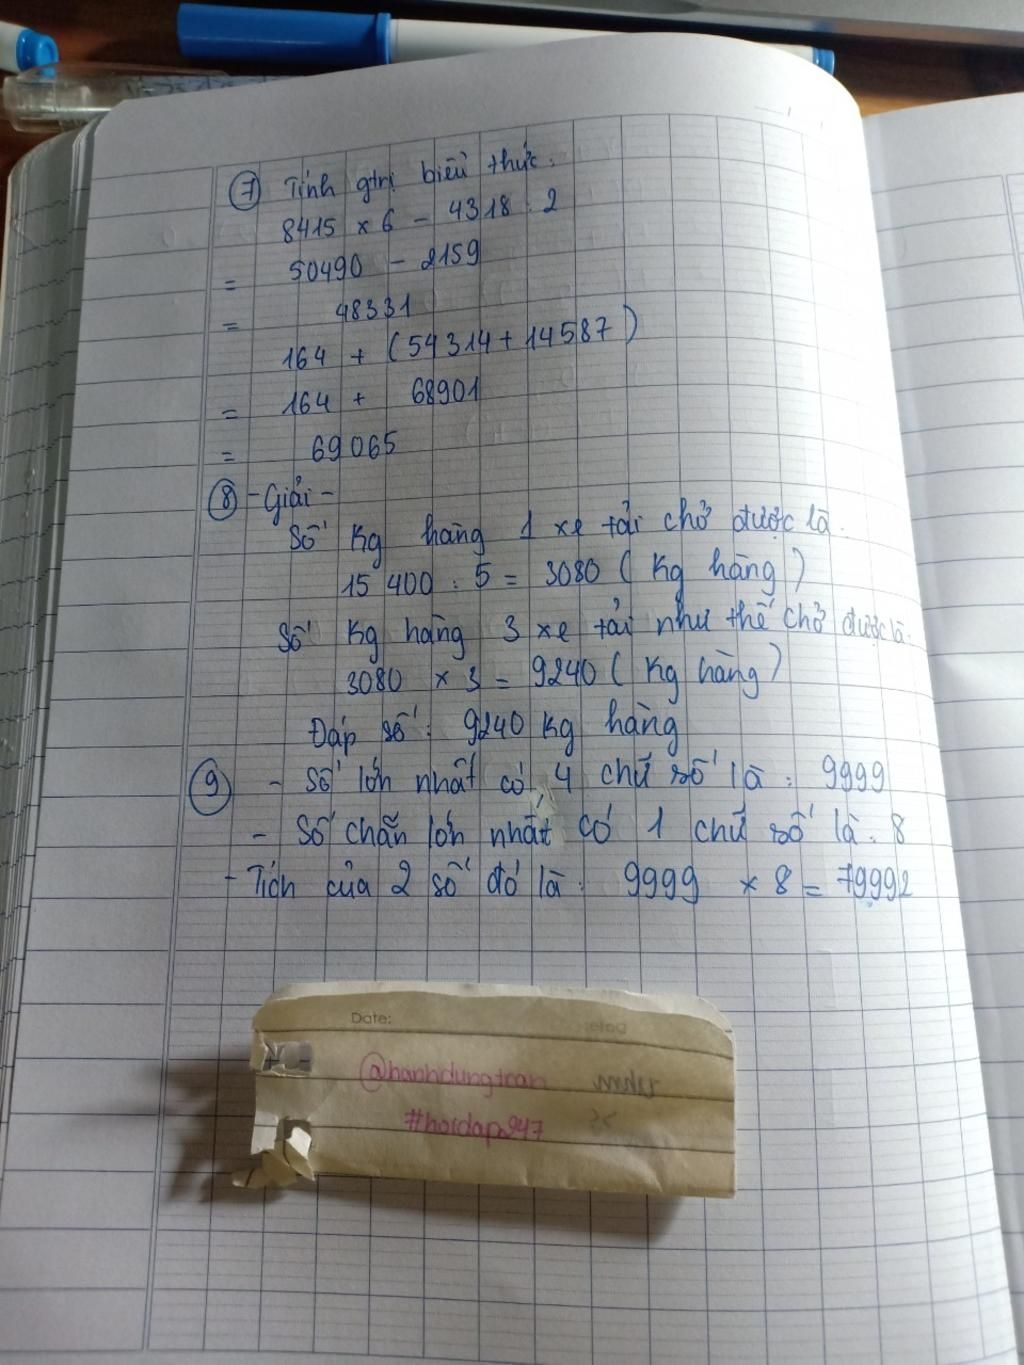 ⑦ Tính gtrị biểu thức.
8415 × 6 - 4318 : 2
= 50490 - 2159
= 48331
164 + (54314 + 14587)
= 164 + 68901
= 69065
⑧ - Giải -
Số kg hàng 1 xe tải chở được là:
15 400 : 5 = 3080 (kg hàng)
Số kg hàng 3 xe tải như thế chở được là:
3080 × 3 = 9240 (kg hàng)
Đáp số: 9240 kg hàng
⑨ - Số lớn nhất có 4 chữ số là: 9999
- Số chẵn lớn nhất có 1 chữ số là: 8
- Tích của 2 số đó là: 9999 × 8 = 79992
Date:
@hanhdungtran
#hoidap247